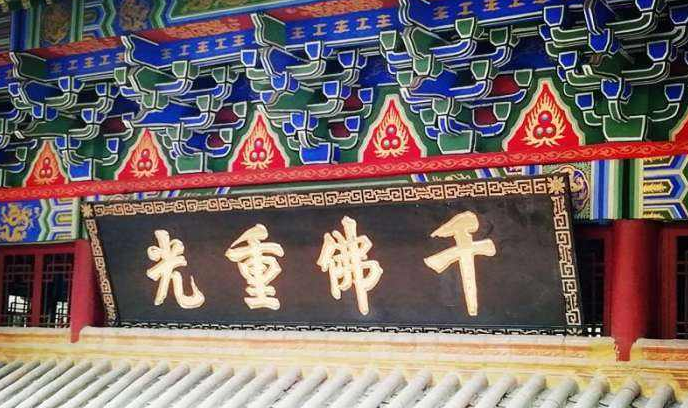 千佛重光